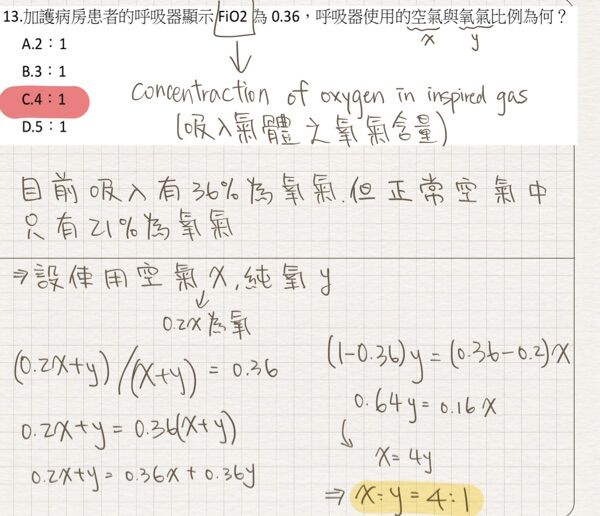 13.加護病房患者的呼吸器顯示 FiO2 為 0.36，呼吸器使用的空氣與氧氣比例為何？
x y
A.2：1
B.3：1
C.4：1
D.5：1
concentraction of oxygen in inspired gas
(吸入氣體之氧氣含量)
目前吸入有36%為氧氣.但正常空氣中
只有21%為氧氣
⇒設使用空氣x,純氧y
0.2x為氧
(0.2x+y)/(x+y) = 0.36
0.2x+y = 0.36(x+y)
0.2x+y = 0.36x + 0.36y
(1-0.36)y = (0.36-0.2)x
0.64y = 0.16x
x = 4y
⇒ x:y = 4:1